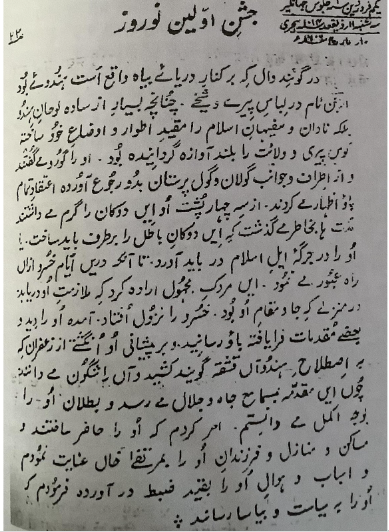 جشنِ اوّلین نوروز
در گوبند وال کہ بر کنارِ دریائے بیاہ واقع است ہندوئے بُود
ارجن نام در لباسِ پیرے و شیخے ۔ چنانچہ بسیارے از سادہ لوحانِ ہنود
بلکہ نادان و سفیہانِ اسلام را مقیدِ اطوار و اوضاعِ خود ساختہ
کوسِ پیری و ولایت را بلند آوازہ گردانیدہ بُود ۔ او را گورو مے گفتند
و از اطراف و جوانب گولان و گول پرستان بدُو رجوع آوردہ اعتقادِ تمام
باوُ اظہار مے کردند ۔ از سہ چہار پشت اُو ایں دوکان را گرم مے داشتند
مدت ہا بخاطر مے گذشت کہ ایں دوکانِ باطل را برطرف باید ساخت ۔ یا
اُو را در جرگۂ اہلِ اسلام در باید آورد ۔ تا آنکہ دریں ایام خسرو ازاں
راہ عبور مے نمُود ۔ ایں مردکِ مجہول ارادہ کرد کہ ملازمتِ اُو دریابد
در منزلے کہ جا و مقامِ اُو بُود ۔ خسرو را نزول اُفتاد ۔ آمدہ اُو را دید و
بعضے مُقدمات فرایافتہ باوُ رسانید ۔ و بر پیشانی اُو انگشتے از زعفران کہ
بہ اصطلاحِ ہندوآں قشقہ گویند کشید و آں را شگون مے دانند
چُوں ایں مقدمہ بمسامعِ جاہ و جلال مے رسد و بطلانِ اُو را
بوجہِ اکمل مے دانستم ۔ امر کردم کہ اُو را حاضر ساختند و
مساکن و منازل و فرزندانِ اُو را بمرتضٰے خاں عنایت نمُودم
و اسباب و اموالِ اُو را بقیدِ ضبط در آوردہ فرمُودم کہ
اُو را بہ سیاست و یاسا رسانند